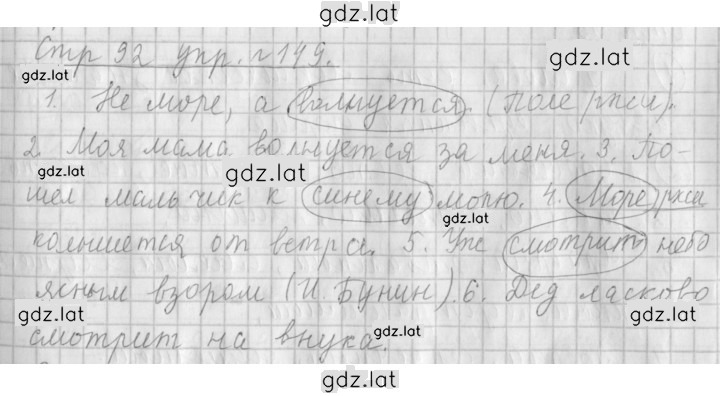 gdz.lat
Стр 92 упр. №149.
gdz.lat
gdz.lat
1. Не море, а волнуется. (Поле ржи).
2. Моя мама волнуется за меня. 3. По-
gdz.lat
gdz.lat
шел мальчик к синему морю. 4. Море ржи
gdz.lat
колышется от ветра. 5. Уже смотрит небо
ясным взором (И. Бунин). 6. Дед ласково
gdz.lat
gdz.lat
смотрит на внука.
gdz.lat
gdz.lat